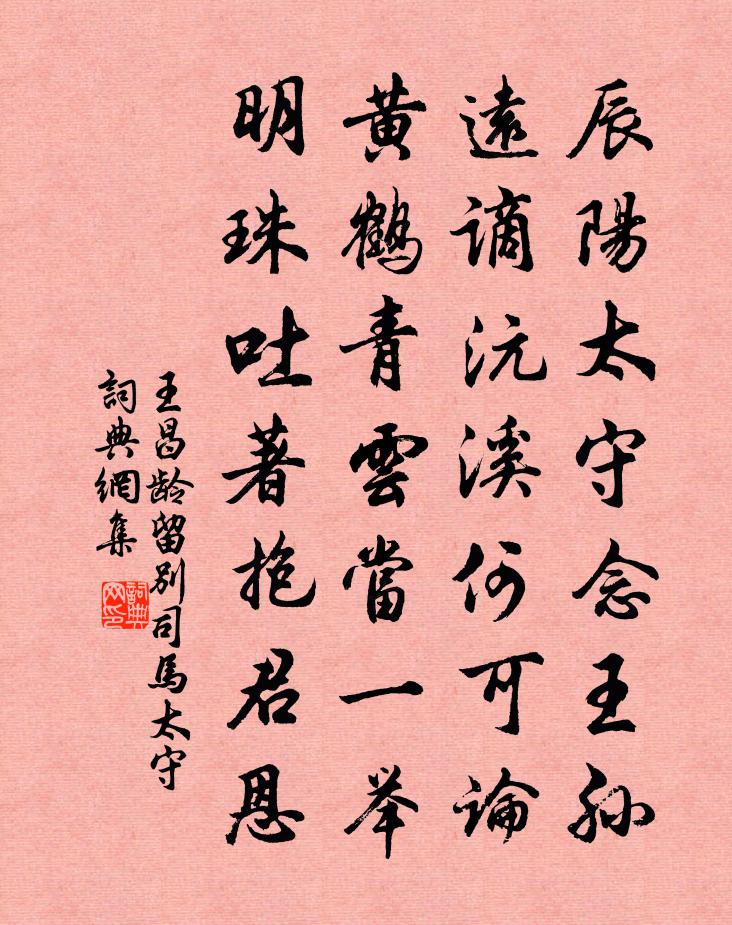 辰陽太守念王孙
遠謫沅溪何可論
黄鶴青雲當一举
明珠吐著抱君恩
王昌龄留别司馬太守
詞典網集
詞典网印